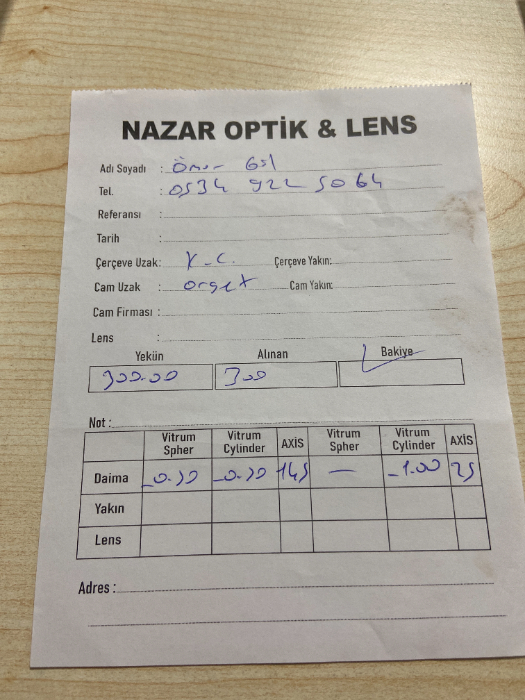 NAZAR OPTİK & LENS
Adı Soyadı : Ömer Gül
Tel. : 0534 922 50 64
Referansı :
Tarih :
Çerçeve Uzak: K.C. Çerçeve Yakın:
Cam Uzak : orgex Cam Yakın:
Cam Firması :
Lens :
Yekün Alınan Bakiye
300.00 300
Not :
Vitrum Spher Vitrum Cylinder AXİS Vitrum Spher Vitrum Cylinder AXİS
Daima -0.50 -0.50 145 — -1.00 25
Yakın
Lens
Adres :